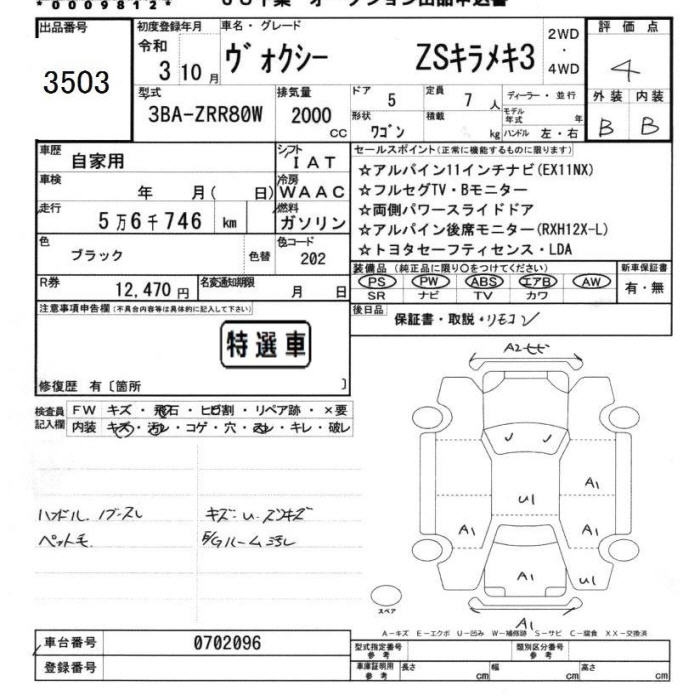 *0009812*
出品番号
3503
初度登録年月
令和
3 10月
車名・グレード
ヴォクシー ZSキラメキ3
2WD
・
4WD
評価点
4
外装 内装
B B
型式
3BA-ZRR80W
排気量
2000
cc
ドア
5
定員
7 人
ディーラー・並行
形状
ワゴン
積載
kg
モデル年式 年
ハンドル 左・右
車歴
自家用
シフト
IAT
車検
年 月( 日)
冷房
WAAC
走行
5万6千746 km
燃料
ガソリン
色
ブラック
色替
色コード
202
R券
12,470円
名変通知期限
月 日
セールスポイント(正常に機能するものに限ります)
☆アルパイン11インチナビ(EX11NX)
☆フルセグTV・Bモニター
☆両側パワースライドドア
☆アルパイン後席モニター(RXH12X-L)
☆トヨタセーフティセンス・LDA
装備品(純正品に限り○をつけてください)
PS PW ABS エアB AW
SR ナビ TV カワ
新車保証書
有・無
後日品
保証書・取説・リモコン
注意事項申告欄(不具合内容等は具体的に記入して下さい)
特選車
修復歴 有〔箇所 〕
検査員
記入欄
FW キズ・飛石・ヒビ割・リペア跡・×要
内装 キズ・汚レ・コゲ・穴・スレ・キレ・破レ
ハンドル
ペット毛
キズ・U・スリキズ
F/Gルーム汚レ
A2
U1
A1
A1
A1
A1
U1
A1
スペア
A-キズ E-エクボ U-凹み W-補修跡 S-サビ C-腐食 XX-交換済
車台番号
0702096
登録番号
型式指定番号
参考
類別区分番号
参考
車庫証明用
参考
長さ cm
幅 cm
高さ cm